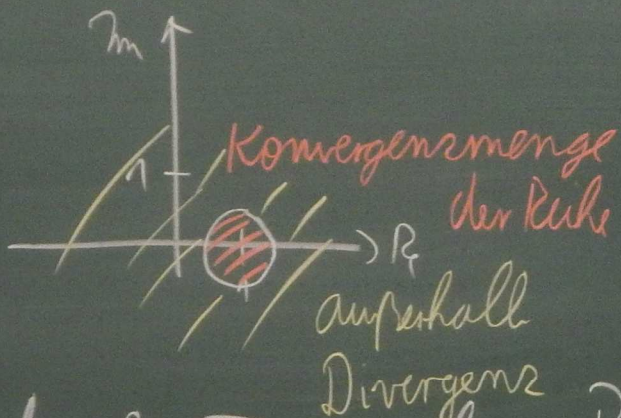 Im
Konvergenzmenge
der Reihe
1
außerhalb
Divergenz